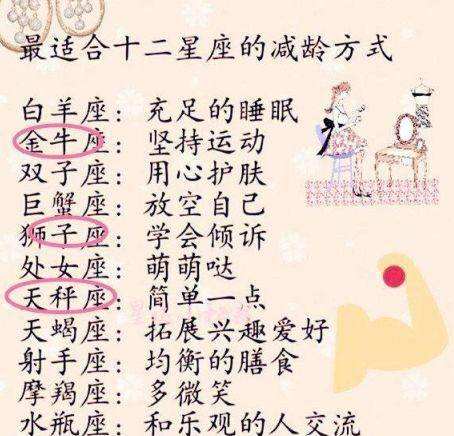 最适合十二星座的减龄方式
白羊座：充足的睡眠
金牛座：坚持运动
双子座：用心护肤
巨蟹座：放空自己
狮子座：学会倾诉
处女座：萌萌哒
天秤座：简单一点
天蝎座：拓展兴趣爱好
射手座：均衡的膳食
摩羯座：多微笑
水瓶座：和乐观的人交流